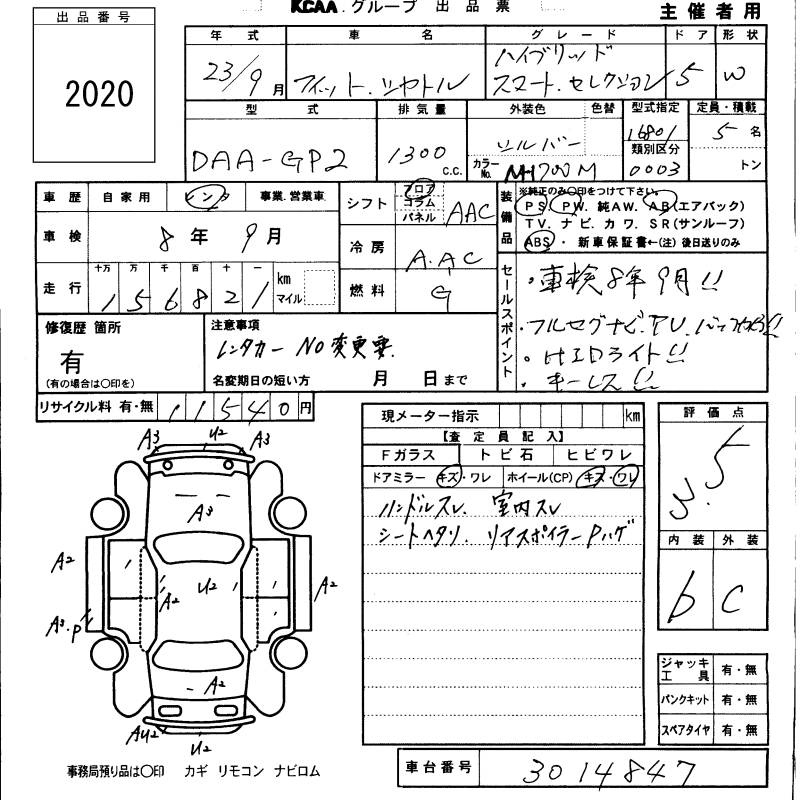 出品番号
2020
KCAA.グループ 出品票
主催者用
年式 車名 グレード ドア 形状
23/9月 フィット.シャトル ハイブリッド スマート.セレクション 5 W
型式 排気量 外装色 色替 型式指定 定員・積載
DAA-GP2 1300 C.C. シルバー 16801 5名
カラーNo. NH700M 類別区分 0003 トン
車歴 自家用 レンタ 事業.営業車
車検 8年9月
走行 十万 万 千 百 十 一
156821 km マイル
シフト フロア コラム パネル AAC
冷房 A.AC
燃料 G
装備品 ※純正のみ〇印をつけて下さい。
PS. PW. 純AW. AB(エアバック)
TV. ナビ. カワ. SR(サンルーフ)
ABS・新車保証書←(注)後日送りのみ
セールスポイント
・車検8年9月!!
・フルセグナビ.TV.
・HIDライト!!
・キーレス!!
修復歴 箇所
有
(有の場合は〇印を)
注意事項
レンタカー NO変更要.
名変期日の短い方 月 日まで
リサイクル料 有・無 11540円
現メーター指示 km
【査定員記入】
Fガラス トビ石 ヒビワレ
ドアミラー キズ・ワレ ホイール(CP) キズ・ワレ
ハンドルスレ. 室内スレ
シートヘタリ. リアスポイラーPハゲ
評価点
3.5
内装 外装
b C
A3 U2 A3
A3
A2 A2 U2 A2
A3.P
A2
AU2 U2
ジャッキ工具 有・無
パンクキット 有・無
スペアタイヤ 有・無
事務局預り品は〇印 カギ リモコン ナビロム
車台番号 3014847